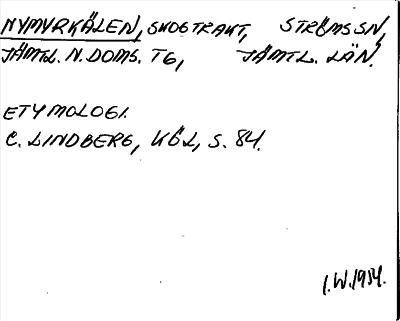 NYMYRKÄLEN, SKOGTRAKT, STRÖMS SN,
JÄMTL. N. DOMS. TG, JÄMTL. LÄN.
ETYMOLOGI.
C. LINDBERG, KÖL, S. 84.
I.W.1954.